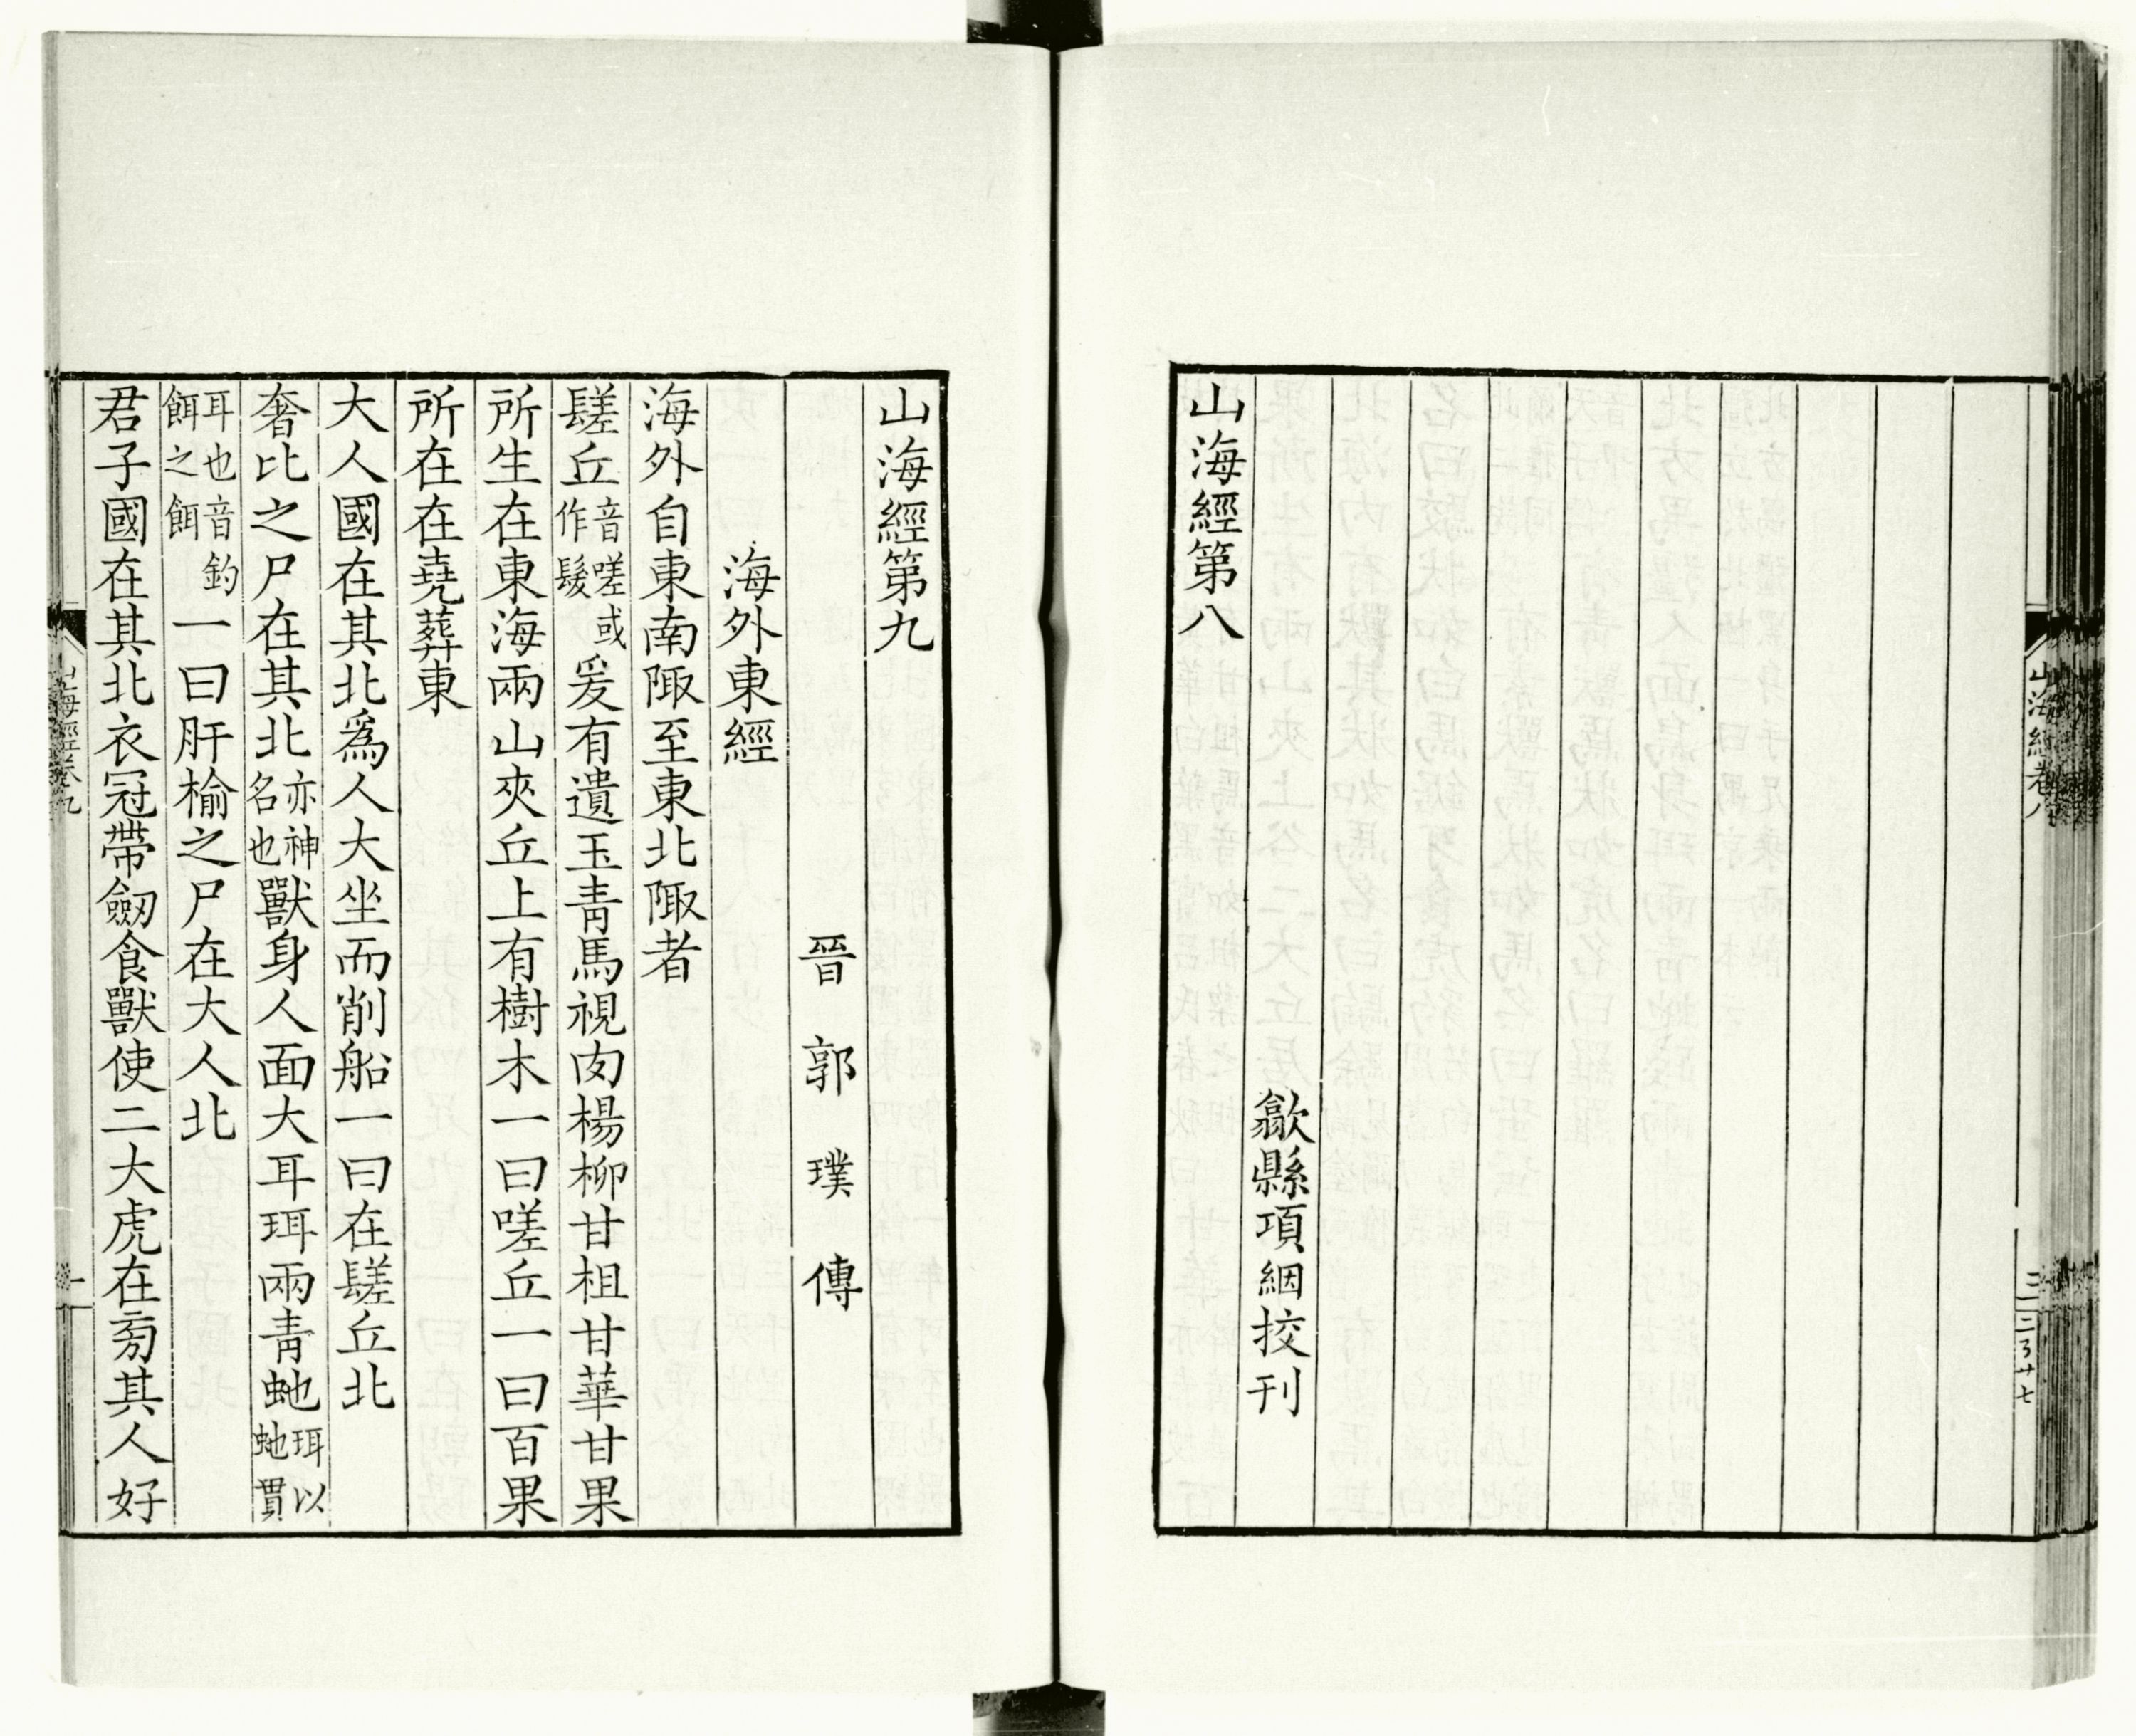 歙縣項絪挍刊
山海經第八
山海經第九
晉郭璞傳
海外東經
海外自東南陬至東北陬者
䰈丘音嗟或作髮爰有遺玉青馬視肉楊柳甘柤甘華甘果
所生在東海兩山夾丘上有樹木一曰嗟丘一曰百果
所在在堯葬東
大人國在其北爲人大坐而削船一曰在䰈丘北
奢比之尸在其北亦神名也獸身人面大耳珥兩青虵珥以虵貫
耳也音釣餌之餌一曰肝榆之尸在大人北
君子國在其北衣冠帶劒食獸使二大虎在旁其人好
山海經卷九
一